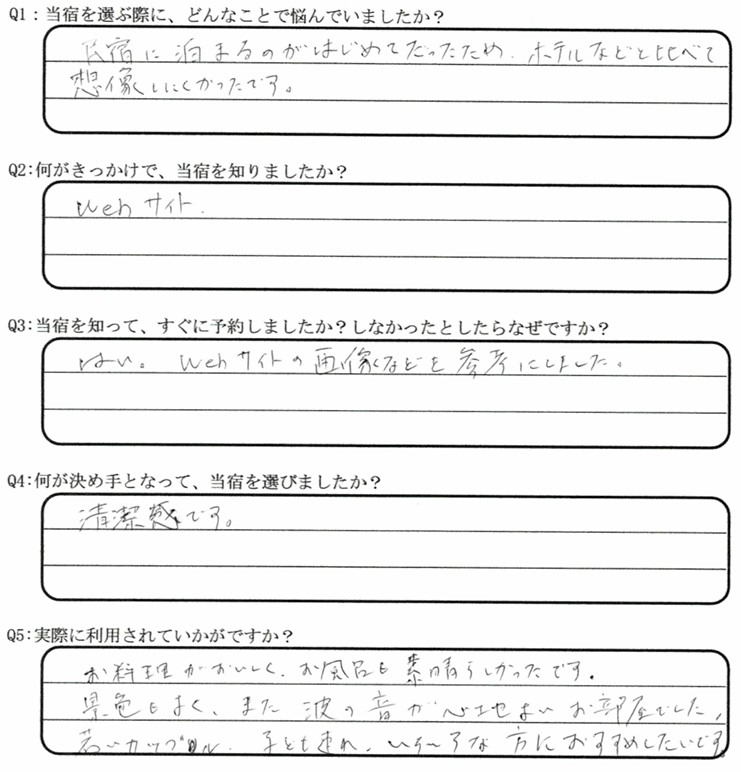 Q1：当宿を選ぶ際に、どんなことで悩んでいましたか？
民宿に泊まるのがはじめてだったため、ホテルなどと比べて
想像しにくかったです。
Q2：何がきっかけで、当宿を知りましたか？
Webサイト.
Q3：当宿を知って、すぐに予約しましたか？しなかったとしたらなぜですか？
はい。Webサイトの画像などを参考にしました。
Q4：何が決め手となって、当宿を選びましたか？
清潔感です。
Q5：実際に利用されていかがですか？
お料理がおいしく、お風呂も素晴らしかったです。
景色もよく、また波の音が心地よいお部屋でした。
若いカップル、子ども連れ、いろいろな方におすすめしたいです